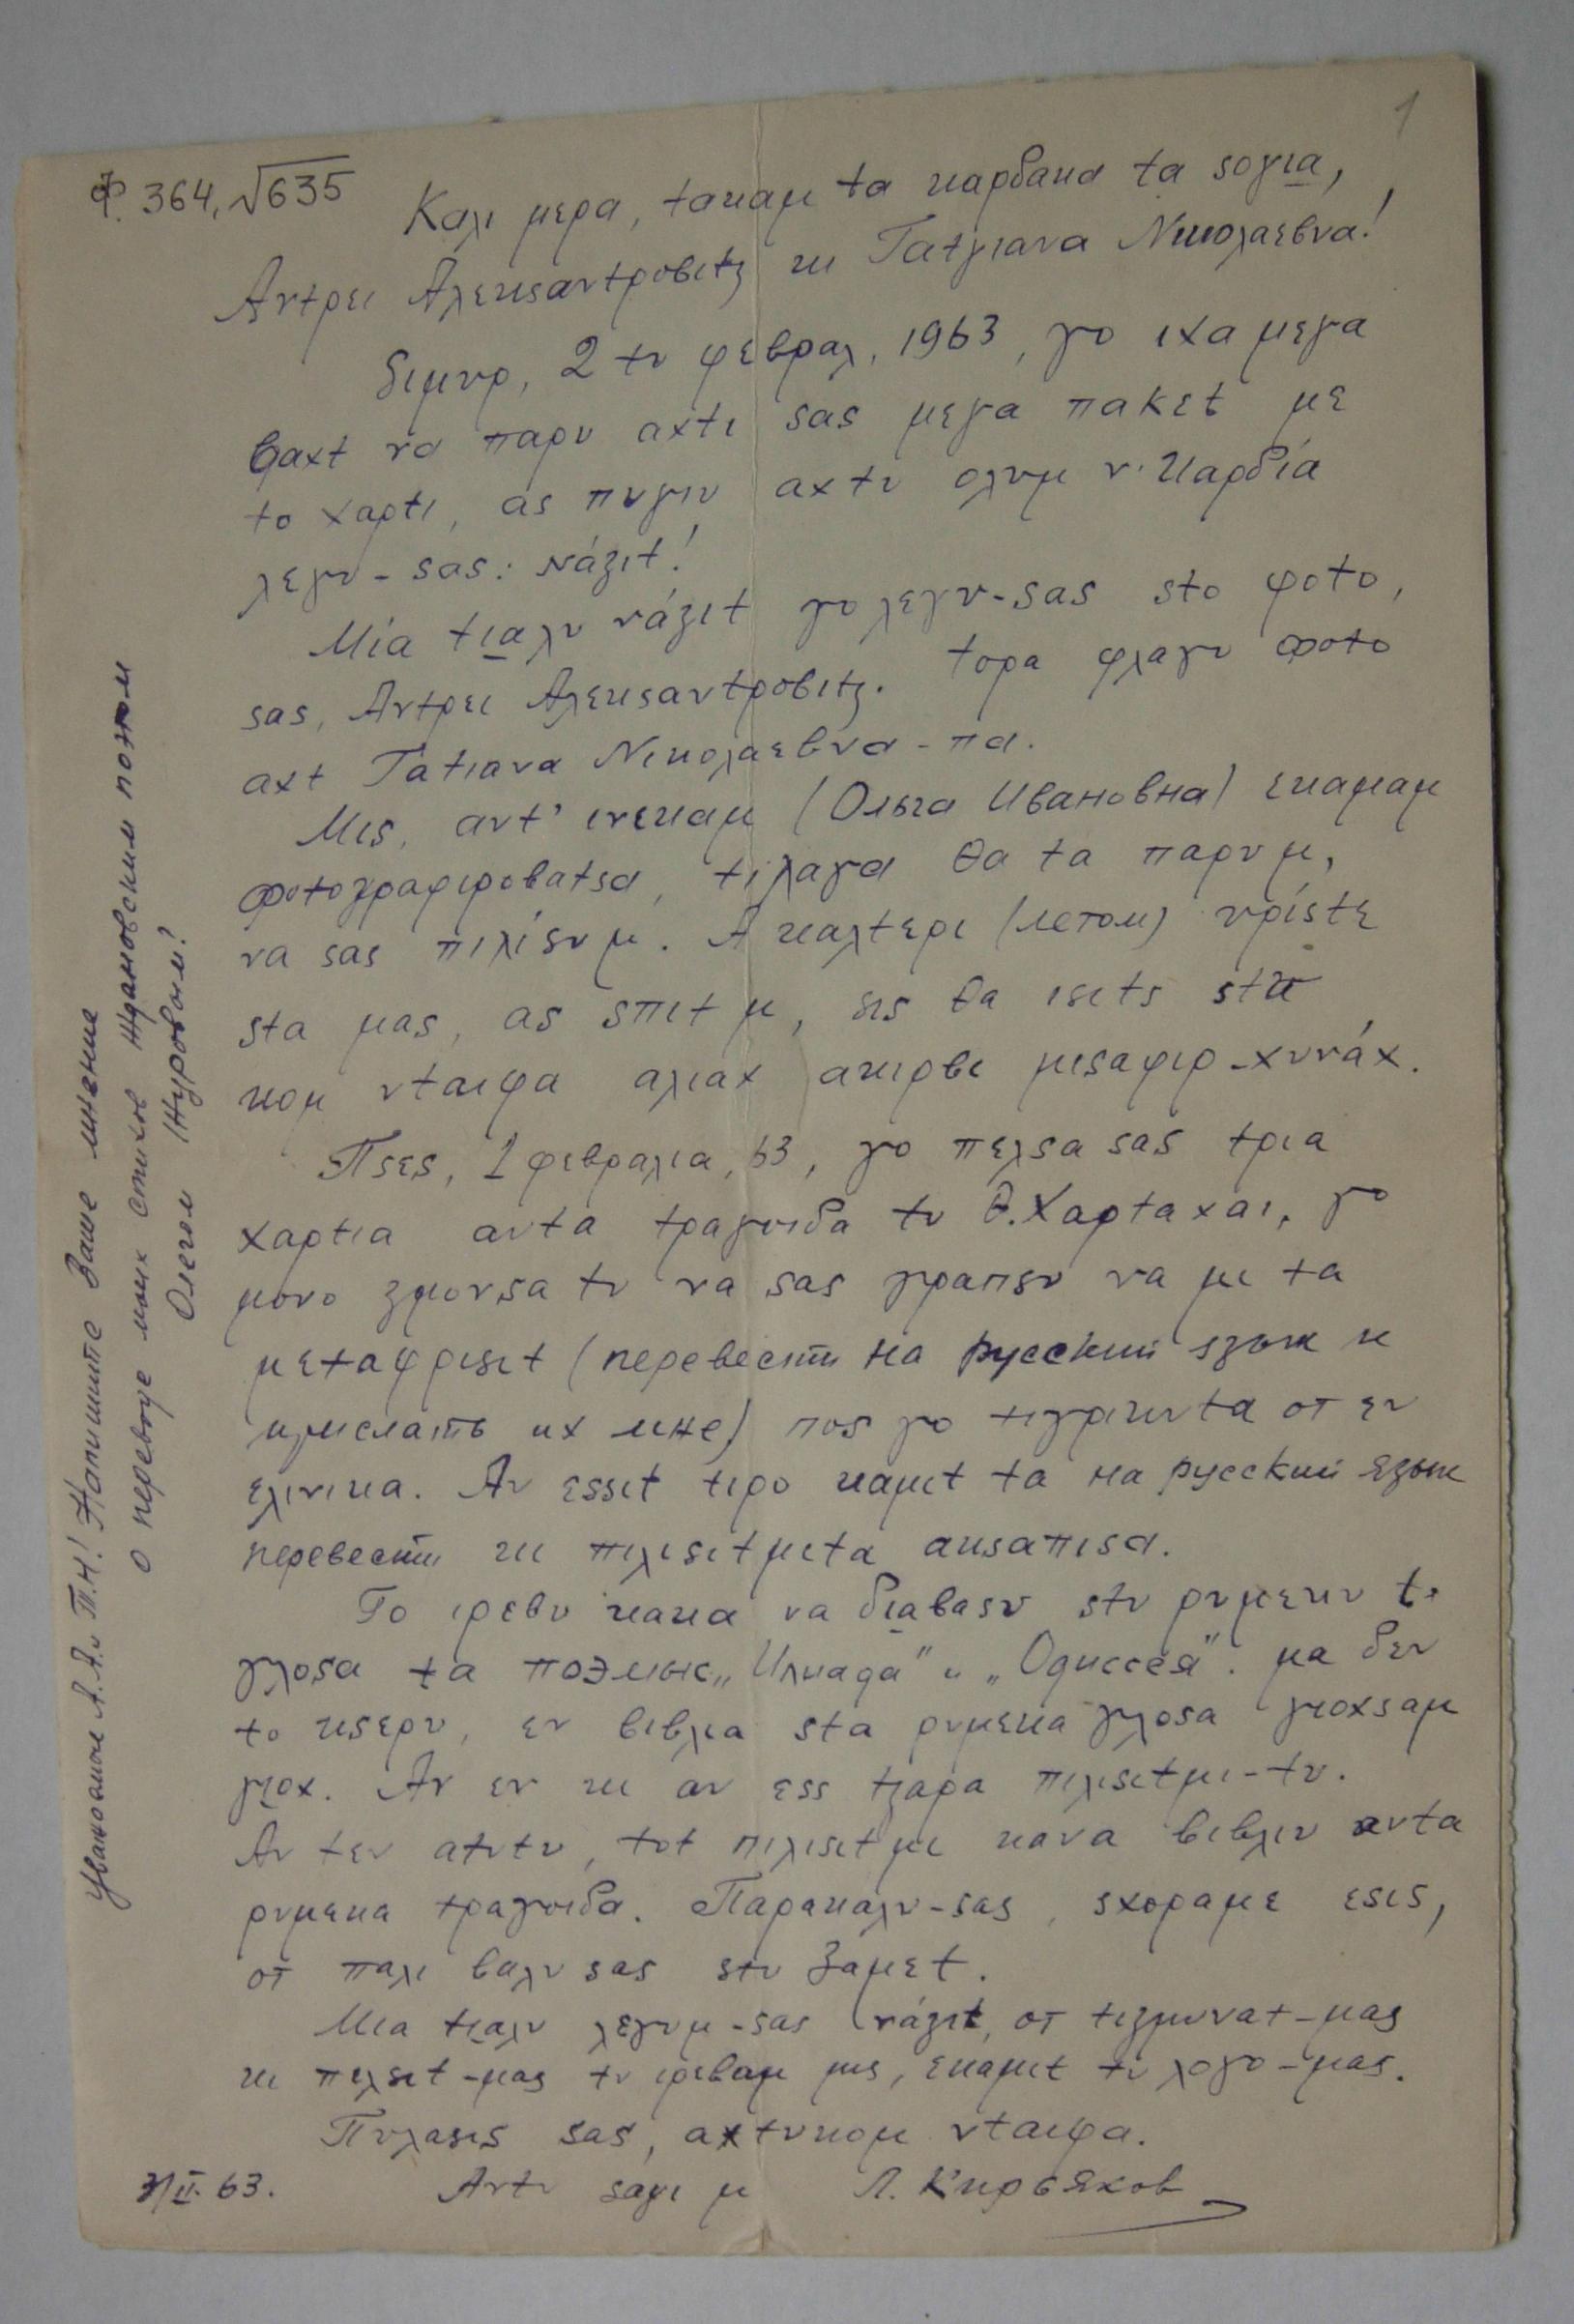 1
Ф. 364, √635
Καλι μερα, tακαμ ta καρδακα ta soγια,
Αντρει Αλεκsαντροβιtζ κι Τατγιανα Νικολαεβνα!
Sιμυρ, 2 tυ φεβραλ, 1963, γο ιχα μεγα
βαχt να παρυ αχtι sas μεγα πακεt με
to χαρtι, as πυγιυ αχtυ ολυμ ν' καρδία
λεγυ-sas: νάζιt!
Μία tιαλυ νάζιt γο λεγυ-sas sto φοtο,
sas, Αντρει Αλεκsαντροβιtζ. tορα φλαγυ φοtο
αχt Τατιανα Νικολαεβνα-πα.
Μιs, αντ' ινεκαμ (Ольга Ивановна) εκαμαμ
φοtογραφιροβαtsα, tιλαγα θα ta παρυμ,
να sas πιλίsυμ. Α καλtερι (летом) υρίstε
sta μας, as sπιt μ, sιs θα ιsιts stu
κομ νtαιφα αλιαχ ακιρβι μιsαφιρ-χυνάχ.
Πsεs, 1 φεβραλια, 63, γο πελsα sas tρια
χαρtια αντα tραγυιδα tυ Θ. Χαρtαχαι, γο
μονο ζμονsα tυ να sas γραπsυ να μι ta
μεtαφριsιt (перевести на русский язык и
прислать их мне) ποs γο tιγρικυta οτ εν
ελινικα. Αν εssιt tιρο καμιt ta на русский язык
перевести κι πιλιsιtμιta ακsαπιsα.
Γο ιρεβυ κακα να διαβαsυ stυ ρυμεικυ t.
γλοsα ta поэмы „Илиада" и „Одиссея". μα δεν
to κsερυ, εν βιβλια sta ρυμεκα γλοsα γιοχsαμ
γιοχ. Αν εν κι αν εss tζαρα πιλιsιtμι-tυ.
Αν tεν αtυtυ, tυt πιλιsιtμι κανα βιβλιυ αντα
ρυμεκα tραγυιδα. Παρακαλυ-sas, sχοραμε εsιs,
οτ παλι βαλυ sas stυ ζαμεt.
Μια tιαλυ λεγυμ-sas νάζιt, οτ tιζμυνατ-μας
κι πελsιt-μας tυ ιρεβαμ μιs, εκαμιt tυ λογο-μας.
Πυλαsιs sas, αχtυκομ νtαιφα.
3/II-63. Αντι sαγι μ Л. Кирьяков
Уважаемые А.А. и Т.Н.! Напишите Ваше мнение
о переводе моих стихов Ждановским поэтом
Олегом Журовым?